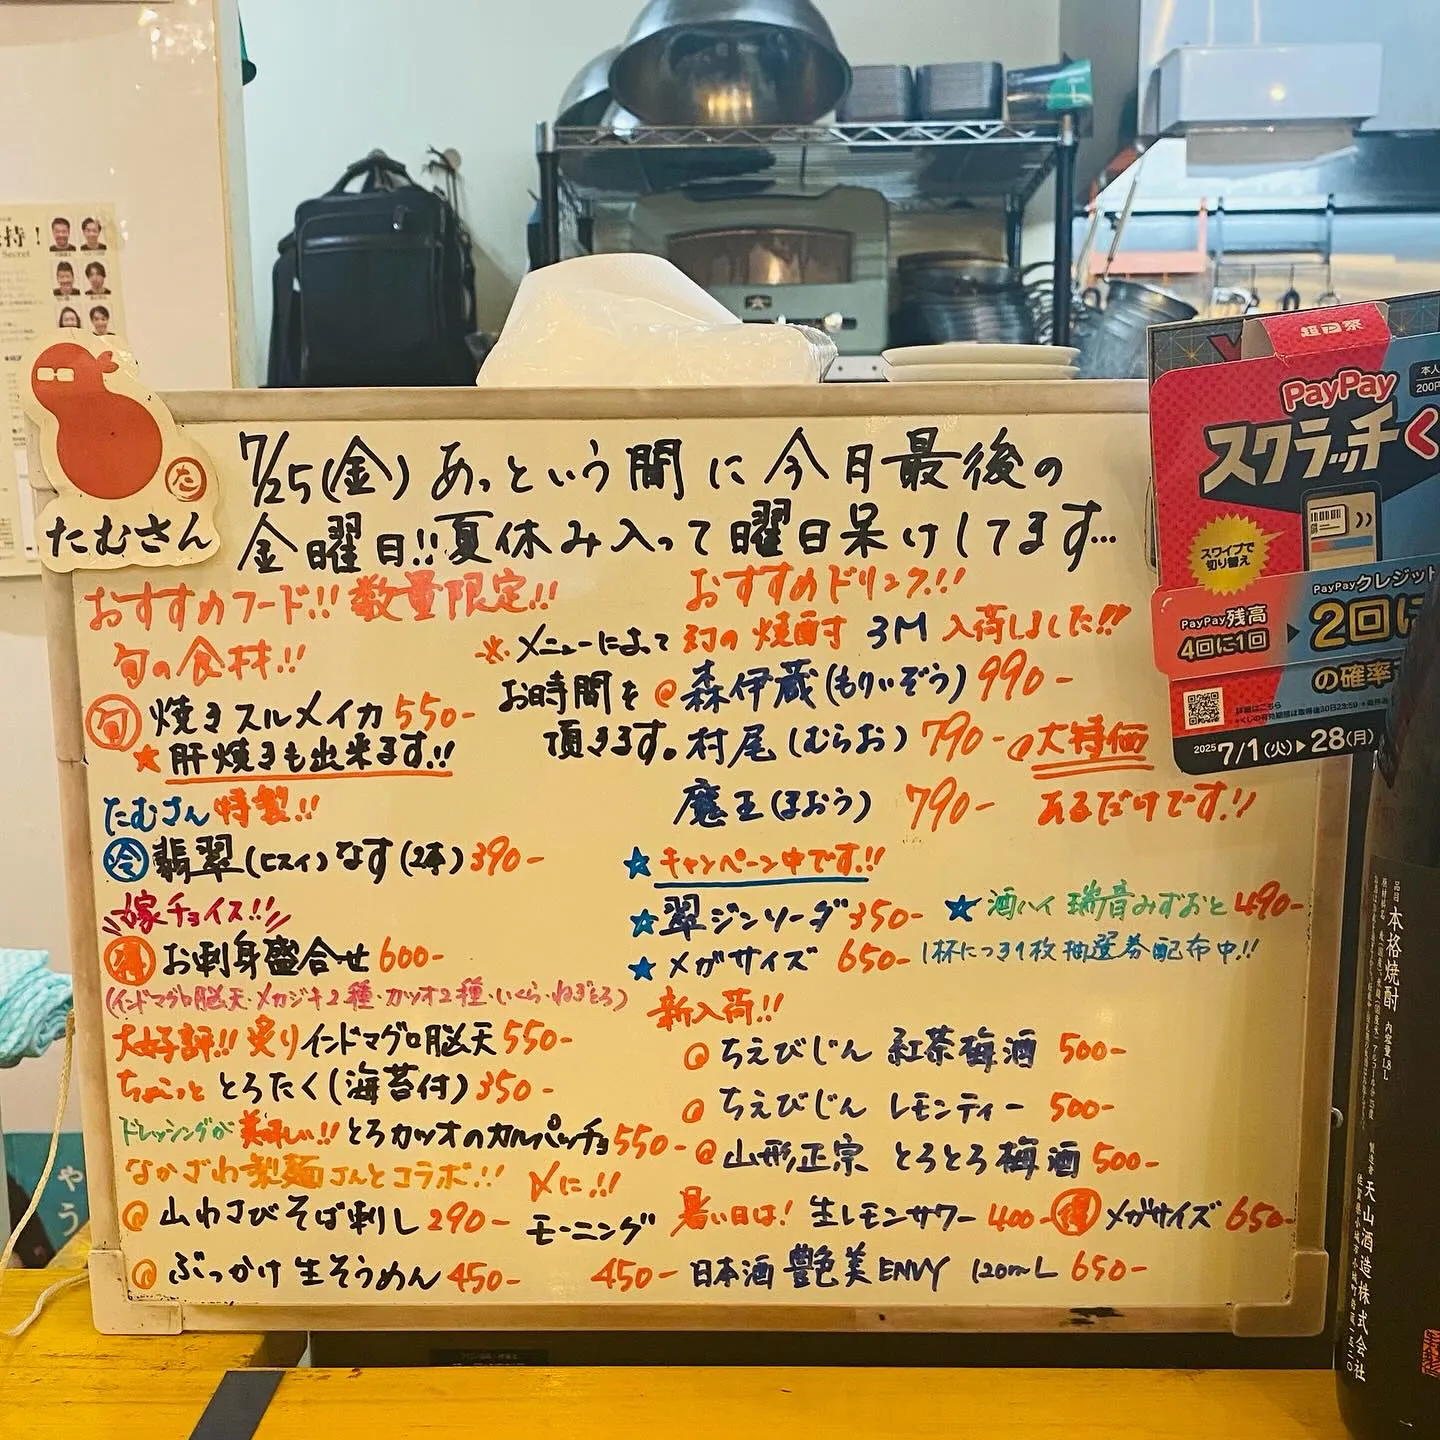 たむさん
7/25(金) あっという間に今月最後の
金曜日!!夏休み入って曜日呆けしてます…
おすすめフード!! 数量限定!!
旬の食材!!
旬 焼きスルメイカ 550-
★肝焼きも出来ます!!
※メニューによって
お時間を
頂きます。
たむさん特製!!
冷 翡翠(ヒスイ)なす(2本) 390-
嫁チョイス!!
得 お刺身盛合せ 600-
(インドマグロ脳天・メカジキ2種・カツオ2種・いくら・ねぎとろ)
大好評!! 炙りインドマグロ脳天 550-
ちょこっと とろたく(海苔付) 350-
ドレッシングが美味しい!! とろカツオのカルパッチョ 550-
なかざわ製麺さんとコラボ!! 〆に!!
@ 山わさびそば刺し 290-
@ ぶっかけ生そうめん 450-
モーニング
450-
おすすめドリンク!!
幻の焼酎 3M 入荷しました!!
@ 森伊蔵(もりいぞう) 990-
村尾(むらお) 790- @大特価
魔王(まおう) 790- あるだけです!!
☆キャンペーン中です!!
☆翠ジンソーダ 350-
☆メガサイズ 650-
★酒ハイ 瑞音みずおと 490-
1杯につき1枚抽選券配布中!!
新入荷!!
@ ちえびじん 紅茶梅酒 500-
@ ちえびじん レモンティー 500-
@ 山形正宗 とろとろ梅酒 500-
暑い日は! 生レモンサワー 400- 得 メガサイズ 650-
日本酒 艶美 ENVY 120mL 650-
超PayPay祭
PayPay
スクラッチく
スワイプで
切り替え
PayPay残高
4回に1回
PayPayクレジット
2回に
の確率で
詳細はこちら
2025 7/1(火)▶28(月)
本人
200P
持!
Secret
ゃう
品目 本格焼酎 内容量1.8L
製造者 天山酒造株式会社